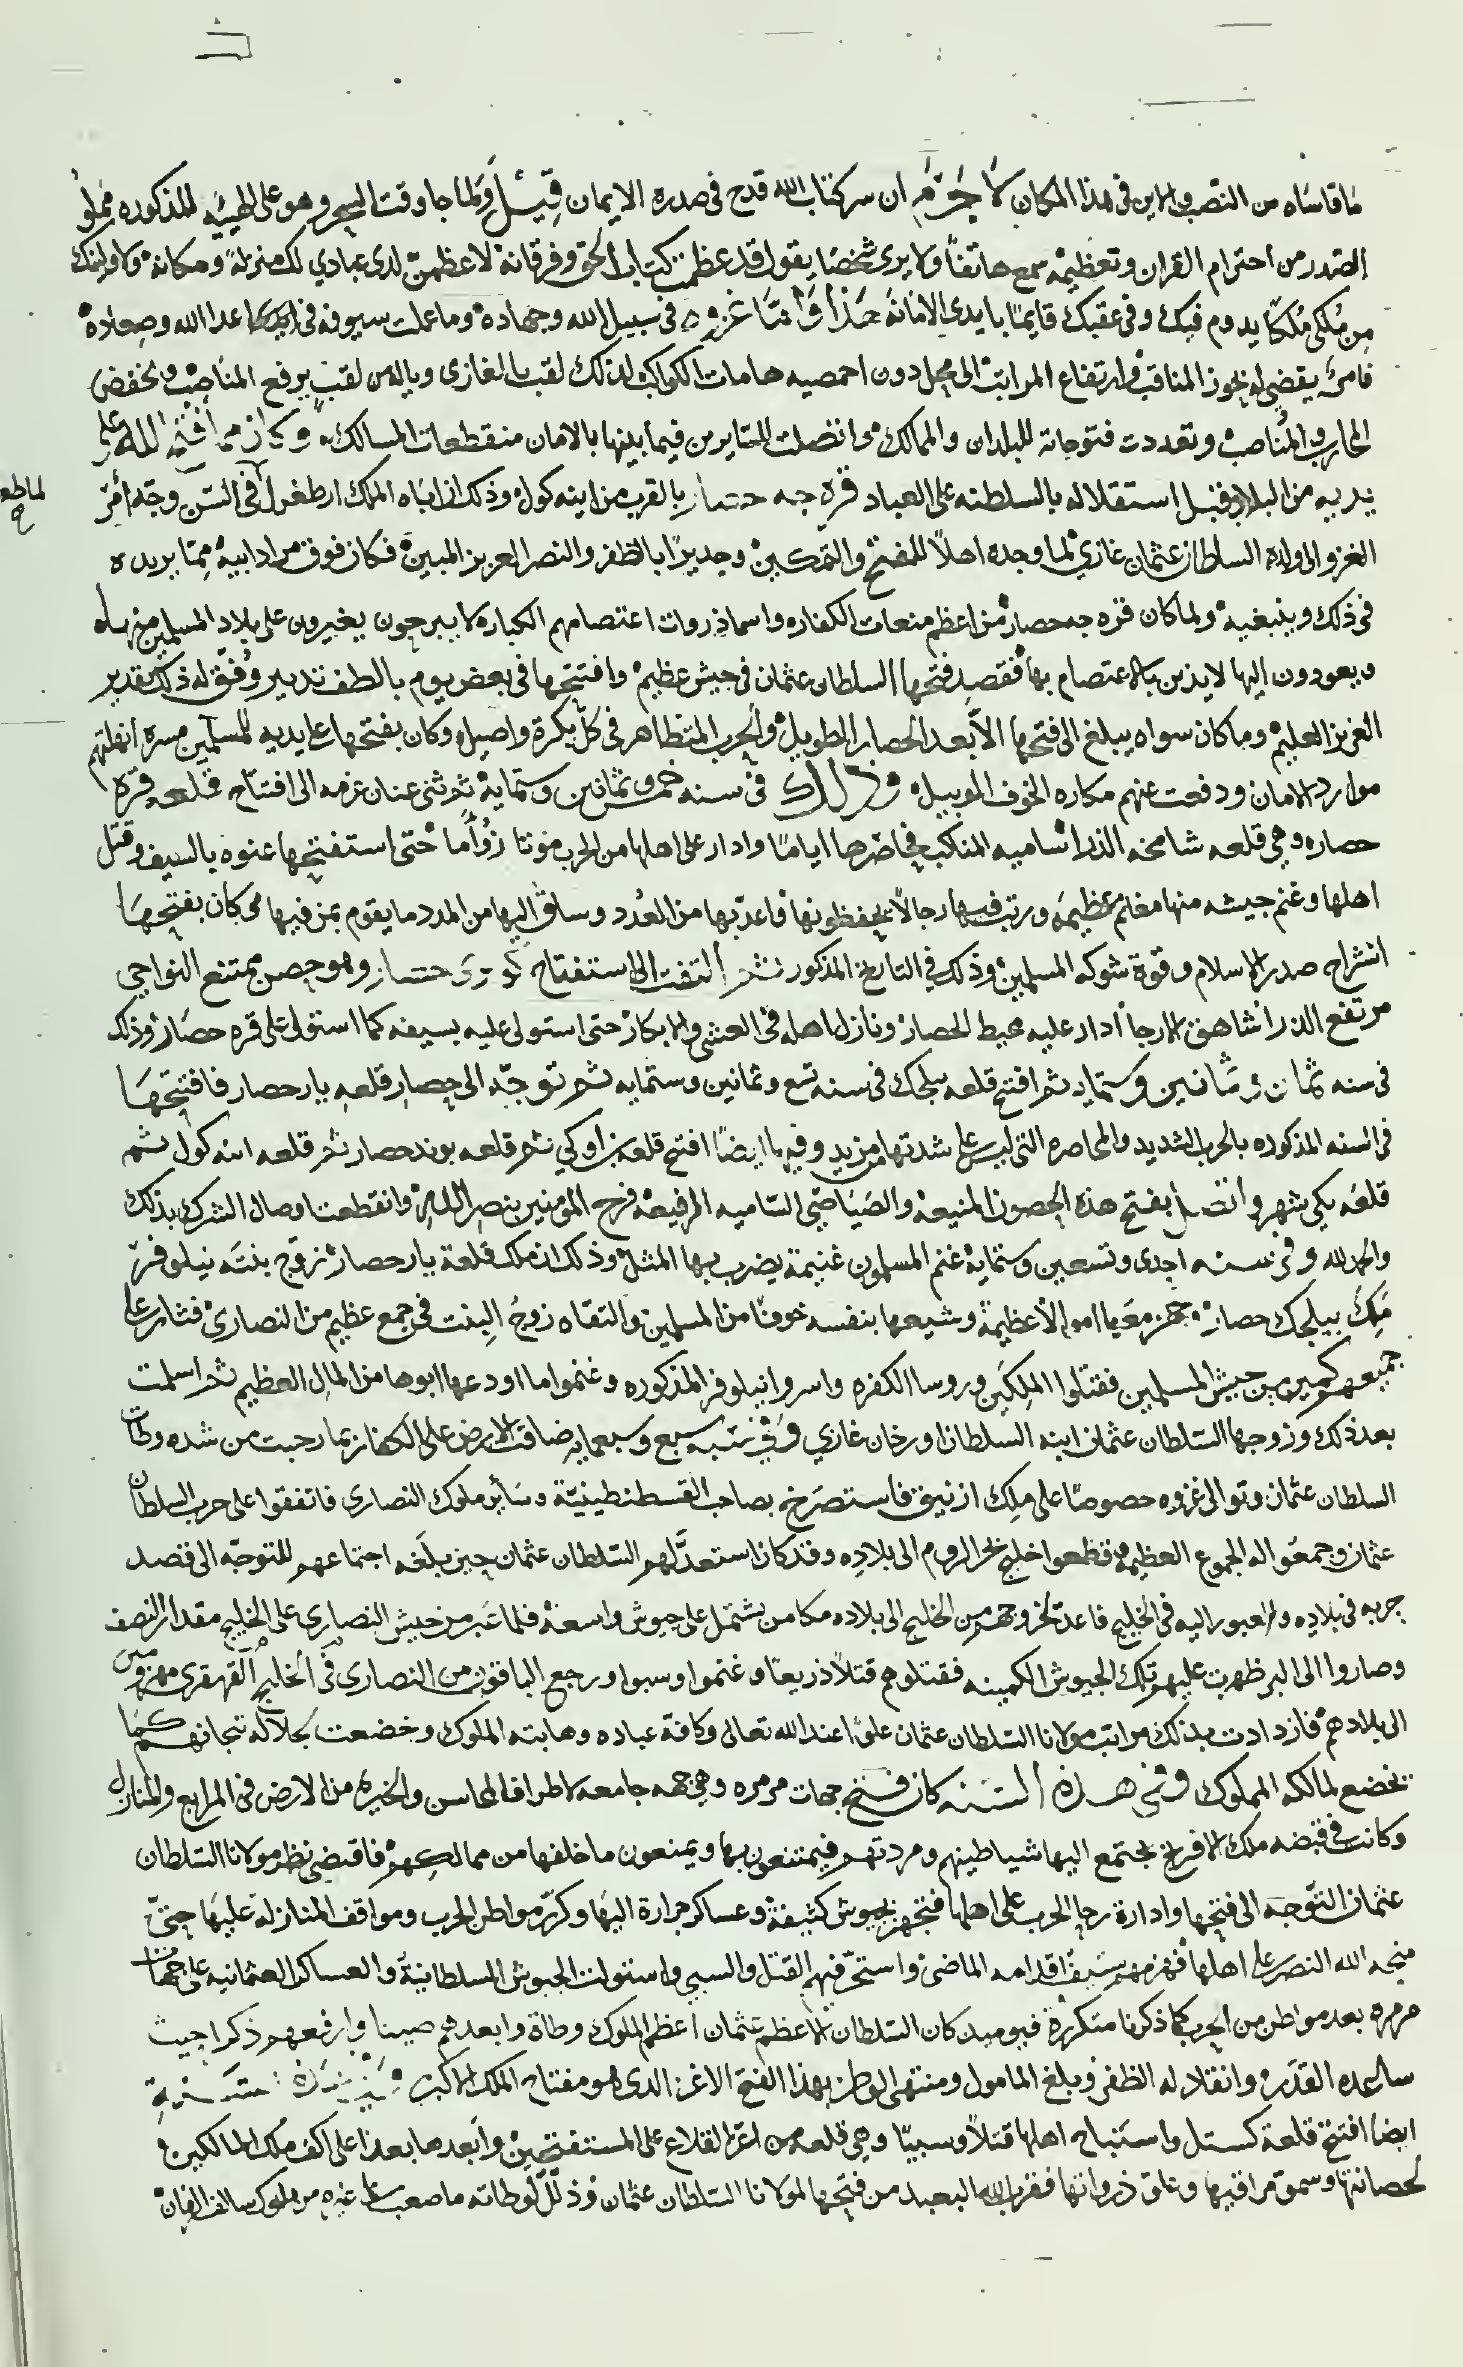 ما قاساه من النصب والاين في هذا المكان لا جرم ان سر كتاب الله قدح في صدره الايمان قيل ولما جا وقت السحر وهو على الهيئه المذكوره مملو
الصدر من احترام القران وتعظيمه سمع هاتفا ولا يرى شخصا يقول قد عظمت كتاب الحق وفرقانه لاعظمن لدى عبادي لك منزلة ومكانة ولاولينك
من ملكي ملكا يدوم فيك وفي عقبك قايما بايدي الامانه هذا واما غزوه في سبيل الله وجهاده وما عملت سيوفه في اعدا الله وصعاده
فامر يقضي له بحوز المناقب وارتفاع المراتب الى محل دون اخمصيه هامات الكواكب لذلك لقب بالغازى وياله من لقب يرفع المناصب ويخفض
المحارب والمناصب وتعددت فتوحاته للبلدان والممالك واتصلت للسايرين فيما بينها بالامان منقطعات المسالك وكان مما افتتحه الله على
يديه من البلاد قبل استقلاله بالسلطنه على العباد قره جه حصار بالقرب من اينه كول وذلك ان اباه الملك ارطغرل لما طعن في السن وجه امر
الغزو الى ولده السلطان عثمان غازي لما وجده اهلا للفتح والتمكين وجديرا بالظفر والنصر العزيز المبين فكان فوق مراد ابيه مما يريده
في ذلك وينبغيه ولما كان قره جه حصار من اعظم منعات الكفاره واسما ذروات اعتصامهم الكباره لا يبرحون يغيرون على بلاد المسلمين منها
ويعودون اليها لايذين بالاعتصام بها فقصد فتحها السلطان عثمان في جيش عظيم وافتتحها في بعض يوم بالطف تدبير وفق له ذلك تقدير
العزيز العليم وما كان سواه يبلغ الى فتحها الا بعد الحصار الطويل والحرب المتظاهر في كل بكرة واصيل وكان بفتحها على يديه للمسلمين مسرة انهلتهم
موارد الامان ودفعت عنهم مكاره الخوف الوبيل وذلك في سنه خمس وثمانين وستماية ثم ثنى عنان عزمه الى افتتاح قلعه قره
حصاره وهي قلعه شامخه الذرا ساميه المناكب فحاصرها اياما وادار على اهلها من الحرب موتا زؤاما حتى استفتحها عنوه بالسيف وقتل
اهلها وغنم جيشه منها مغانم عظيمه ورتب فيها رجالا يحفظونها فاعد بها من العدد وساق اليها من المدد ما يقوم بمن فيها وكان بفتحها
انشراح صدر الاسلام وقوة شوكه المسلمين وذلك في التاريخ المذكور ثم التفت الى استفتاح حصار وهو حصن ممتنع النواحي
مرتفع الذرا شاهق الارجا ادار عليه محيط الحصار ونازل اهله في العشى والابكار حتى استولى عليه بسيفه كما استولى على قره حصار وذلك
في سنه ثمان وثمانين وستمايه ثم افتتح قلعه بيلجك في سنه تسع وثمانين وستمايه ثم توجه الى حصار قلعه يار حصار فافتتحها
في السنه المذكوره بالحرب الشديد والمحاصره التي ليس على شدتها من مزيد وفيها ايضا افتتح قلعه اين اوكي ثم قلعه بوند حصار ثم قلعه اينه كول ثم
قلعه يكى شهر واتصل بفتح هذه الحصون المنيعه والصياصي الساميه الرفيعه فرح المومنين بنصر الله وانقطعت اوصال الشرك بذلك
والحمد لله وفي سنه احدى وتسعين وستماية غنم المسلمون غنيمة يضرب بها المثل وذلك ان ملك قلعة يار حصار زوج بنته نيلوفر
ملك بيلجك حصار وجهز معها اموالا عظيمة وشيعها بنفسه خوفا من المسلمين والتقاه زوج البنت في جمع عظيم من النصارى فثار على
جميعهم كمين من جيش المسلمين فقتلوا الملكين وروسا الكفره واسروا نيلوفر المذكوره وغنموا ما اودعها ابوها من المال العظيم ثم اسلمت
بعد ذلك وزوجها السلطان عثمان ابنه السلطان اورخان غازي وفي سنه سبع وسبعمايه ضاقت الارض على الكفار بما رحبت من شده وطاة
السلطان عثمان وتوالى غزوه خصوصا على ملك ازنيق فاستصرخ بصاحب القسطنطينية وساير ملوك النصارى فاتفقوا على حرب السلطان
عثمان وجمعوا له الجموع العظيمه وقطعوا خليج بحر الروم الى بلاده وقد كان استعد لهم السلطان عثمان حين بلغه اجتماعهم للتوجه الى قصد
حربه في بلاده والعبور اليه في الخليج فاعد لخروجهم من الخليج الى بلاده مكامن يشتمل على جيوش واسعة فلما عبر من جيش النصارى على الخليج مقدار النصف
وصاروا الى البر ظهرت عليهم تلك الجيوش الكمينه فقتلوهم قتلا ذريعا وغنموا وسبوا ورجع الباقون من النصارى في الخليج القهقرى مهزومين
الى بلادهم فازدادت بذلك مراتب مولانا السلطان عثمان علوا عند الله تعالى وكافة عباده وهابته الملوك وخضعت لجلاله تيجانهم كما
تخضع لمالكه المملوك وفي هذه السنه كان فتح جهات مرمره وهي جهه جامعه لاطراف المحاسن والخيره من الارض في المرابع والمنازل
وكانت في قبضه ملك الافرنج تجتمع اليها شياطينهم ومردتهم فيمتنعون بها ويمنعون ما خلفها من ممالكهم فاقتضى نظر مولانا السلطان
عثمان التوجه الى فتحها وادارة رحا الحرب على اهلها فتجهز بجيوش كثيفة وعساكر جرارة اليها وكرر مواطن الحرب ومواقف المنازله عليها حتى
منحه الله النصر على اهلها فهزمهم سيف اقدامه الماضي واستحر فيهم القتل والسبي واستولت الجيوش السلطانية والعساكر العثمانيه على جهات
مرمره بعد مواطن من الحرب كما ذكرنا متكررة فيوميذ كان السلطان الاعظم عثمان اعظم الملوك وطاة وابعدهم صيتا وارفعهم ذكرا حيث
ساعده القدر وانقاد له الظفر وبلغ المامول ومنتهى الوطر بهذا الفتح الاغر الذي هو مفتاح الملك الاكبر وفي هذه السنة
ايضا افتتح قلعة كستل واستباح اهلها قتلا وسبيا وهي قلعه من اعز القلاع على المستفتحين وابعدها بعدا على اكف ملك المالكين
لحصانتها وسمق مراقيها وعلو ذرواتها فقرب الله البعيد من فتحها لمولانا السلطان عثمان وذلل لوطاته ما صعب على غيره من ملوك سالف الزمان